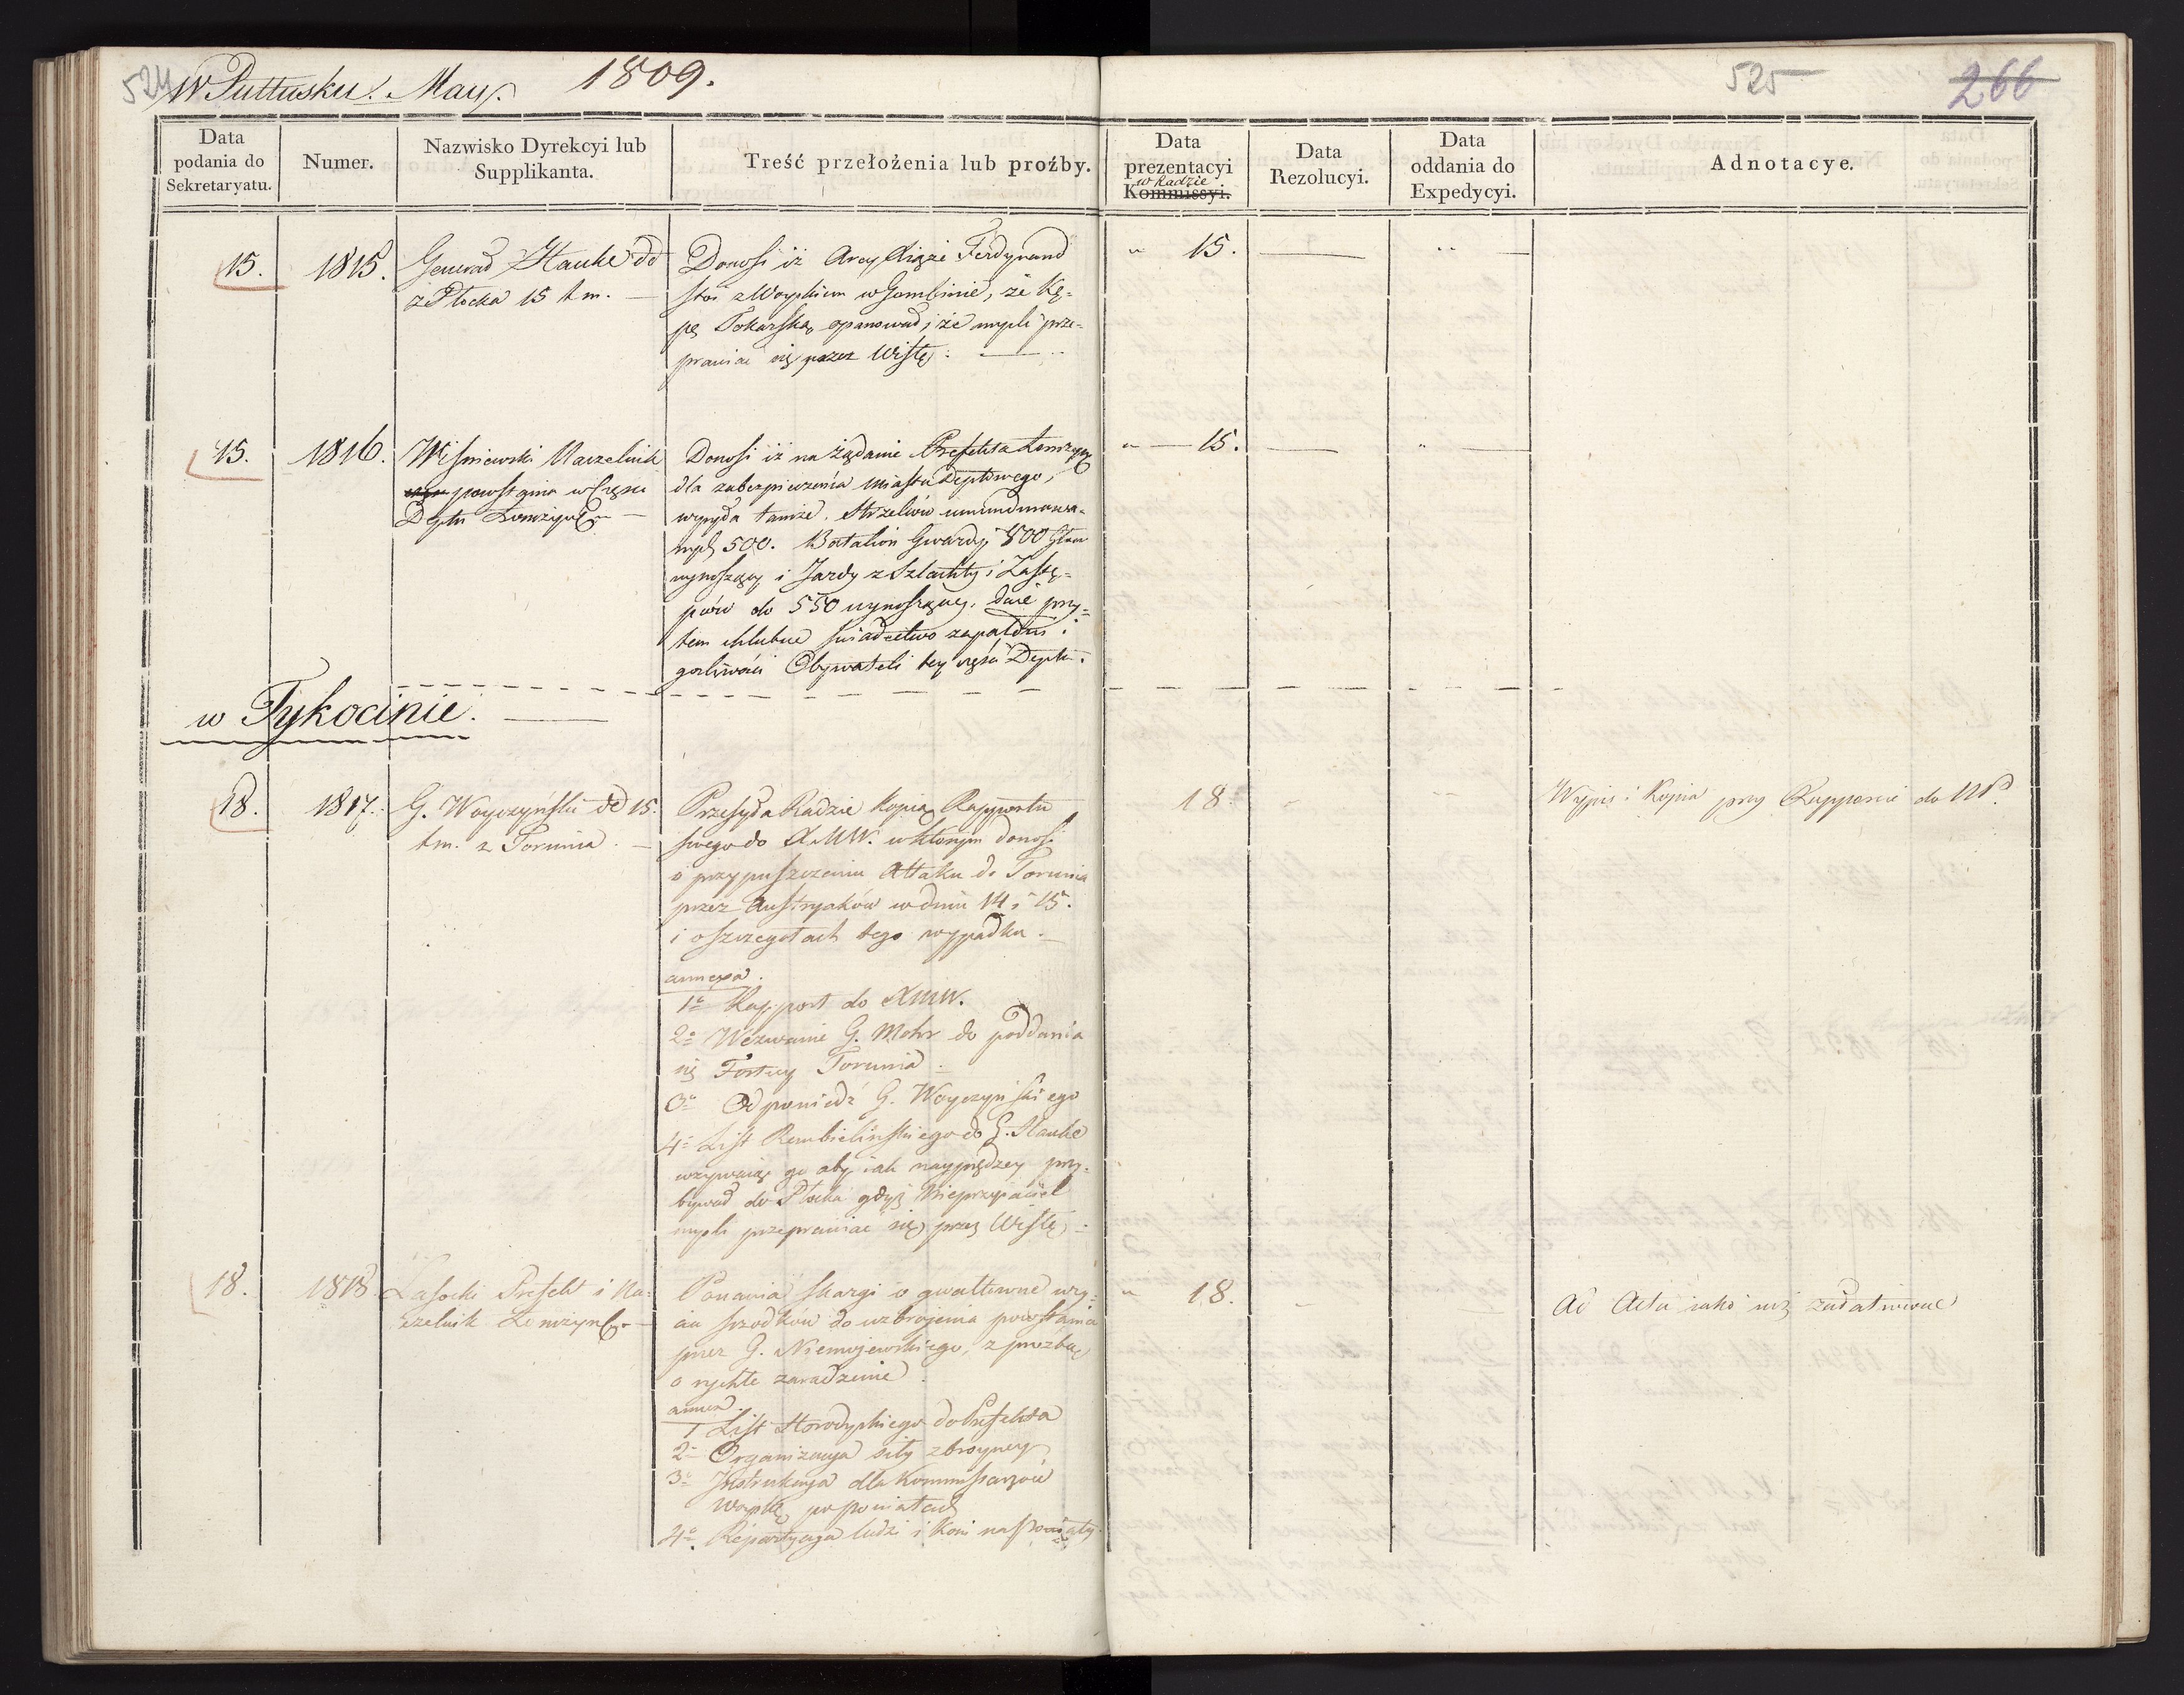 524 W Pułtusku. May. 1809.
525 266
Data podania do Sekretaryatu.
Numer.
Nazwisko Dyrekcyi lub Supplikanta.
Treść przełożenia lub proźby.
Data prezentacyi w Radzie Kommissyi.
Data Rezolucyi.
Data oddania do Expedycyi.
Adnotacye.
15.
1815.
Generał Hauke dd
z Płocka 15 t. m. —
Donosi iż Arcy Xiąże Ferdynand
stoi z Woyskiem w Gombinie, że Kę-
pę Tokarską opanował, i że myśli prze-
prawiać się przez Wisłę. —
" 15.
15.
1816.
Wiśniewski Naczelnik
powstania w Części
Deptu Łomżyńgo —
Donosi iż na żądanie Prefekta Łomżyńgo
dla zabezpieczenia miasta Deptowego,
wysyła tamże Strzelców umundurowa-
nych 500. Batalion Gwardyi 800 Głów
wynoszący i Jazdy z Szlachty i Zastę-
pców do 550 wynoszącey. Daie przy-
tem chlubne świadectwo zapałowi i
gorliwości Obywateli tey części Deptu.
" — 15.
w Tykocinie. —
18.
1817.
G. Woyczyński dd 15.
t. m. z Torunia. —
Przesyła Radzie kopią Rapportu
swego do X. M. W. w którym donosi
o przypuszczeniu Attaku do Torunia
przez Austryaków w dniu 14 i 15.
i o szczegółach tego wypadku. —
annexa.
1o Rapport do XMW.
2o Wezwanie G. Mohr do poddania
się Fortecy Torunia.
3o Odpowiedź G. Woyczyńskiego
4o List Rembielińskiego do G. Hauke
wzywaiąc go aby iak nayprędzey przy-
bywał do Płocka gdyż Nieprzyiaciel
myśli przeprawiać się przez Wisłę —
18.
Wypis i Kopia przy Rapporcie do NP.
18.
1818.
Lasocki Prefekt i Na-
czelnik Łomżyńgo —
Ponawia skargi o gwałtowne wzię-
cie srzodków do uzbrojenia powstania
przez G. Niemojewskiego, z proźbą
o rychłe zaradzenie.
annexa.
1 List Horodyskiego do Prefekta
2o Organizacya siły zbroyney
3o Instrukcya dla Kommissarzów
Woysko po Powiatach
4o Repartycya ludzi i Koni na Powiaty.
" 18.
Ad Acta iako iuż załatwione